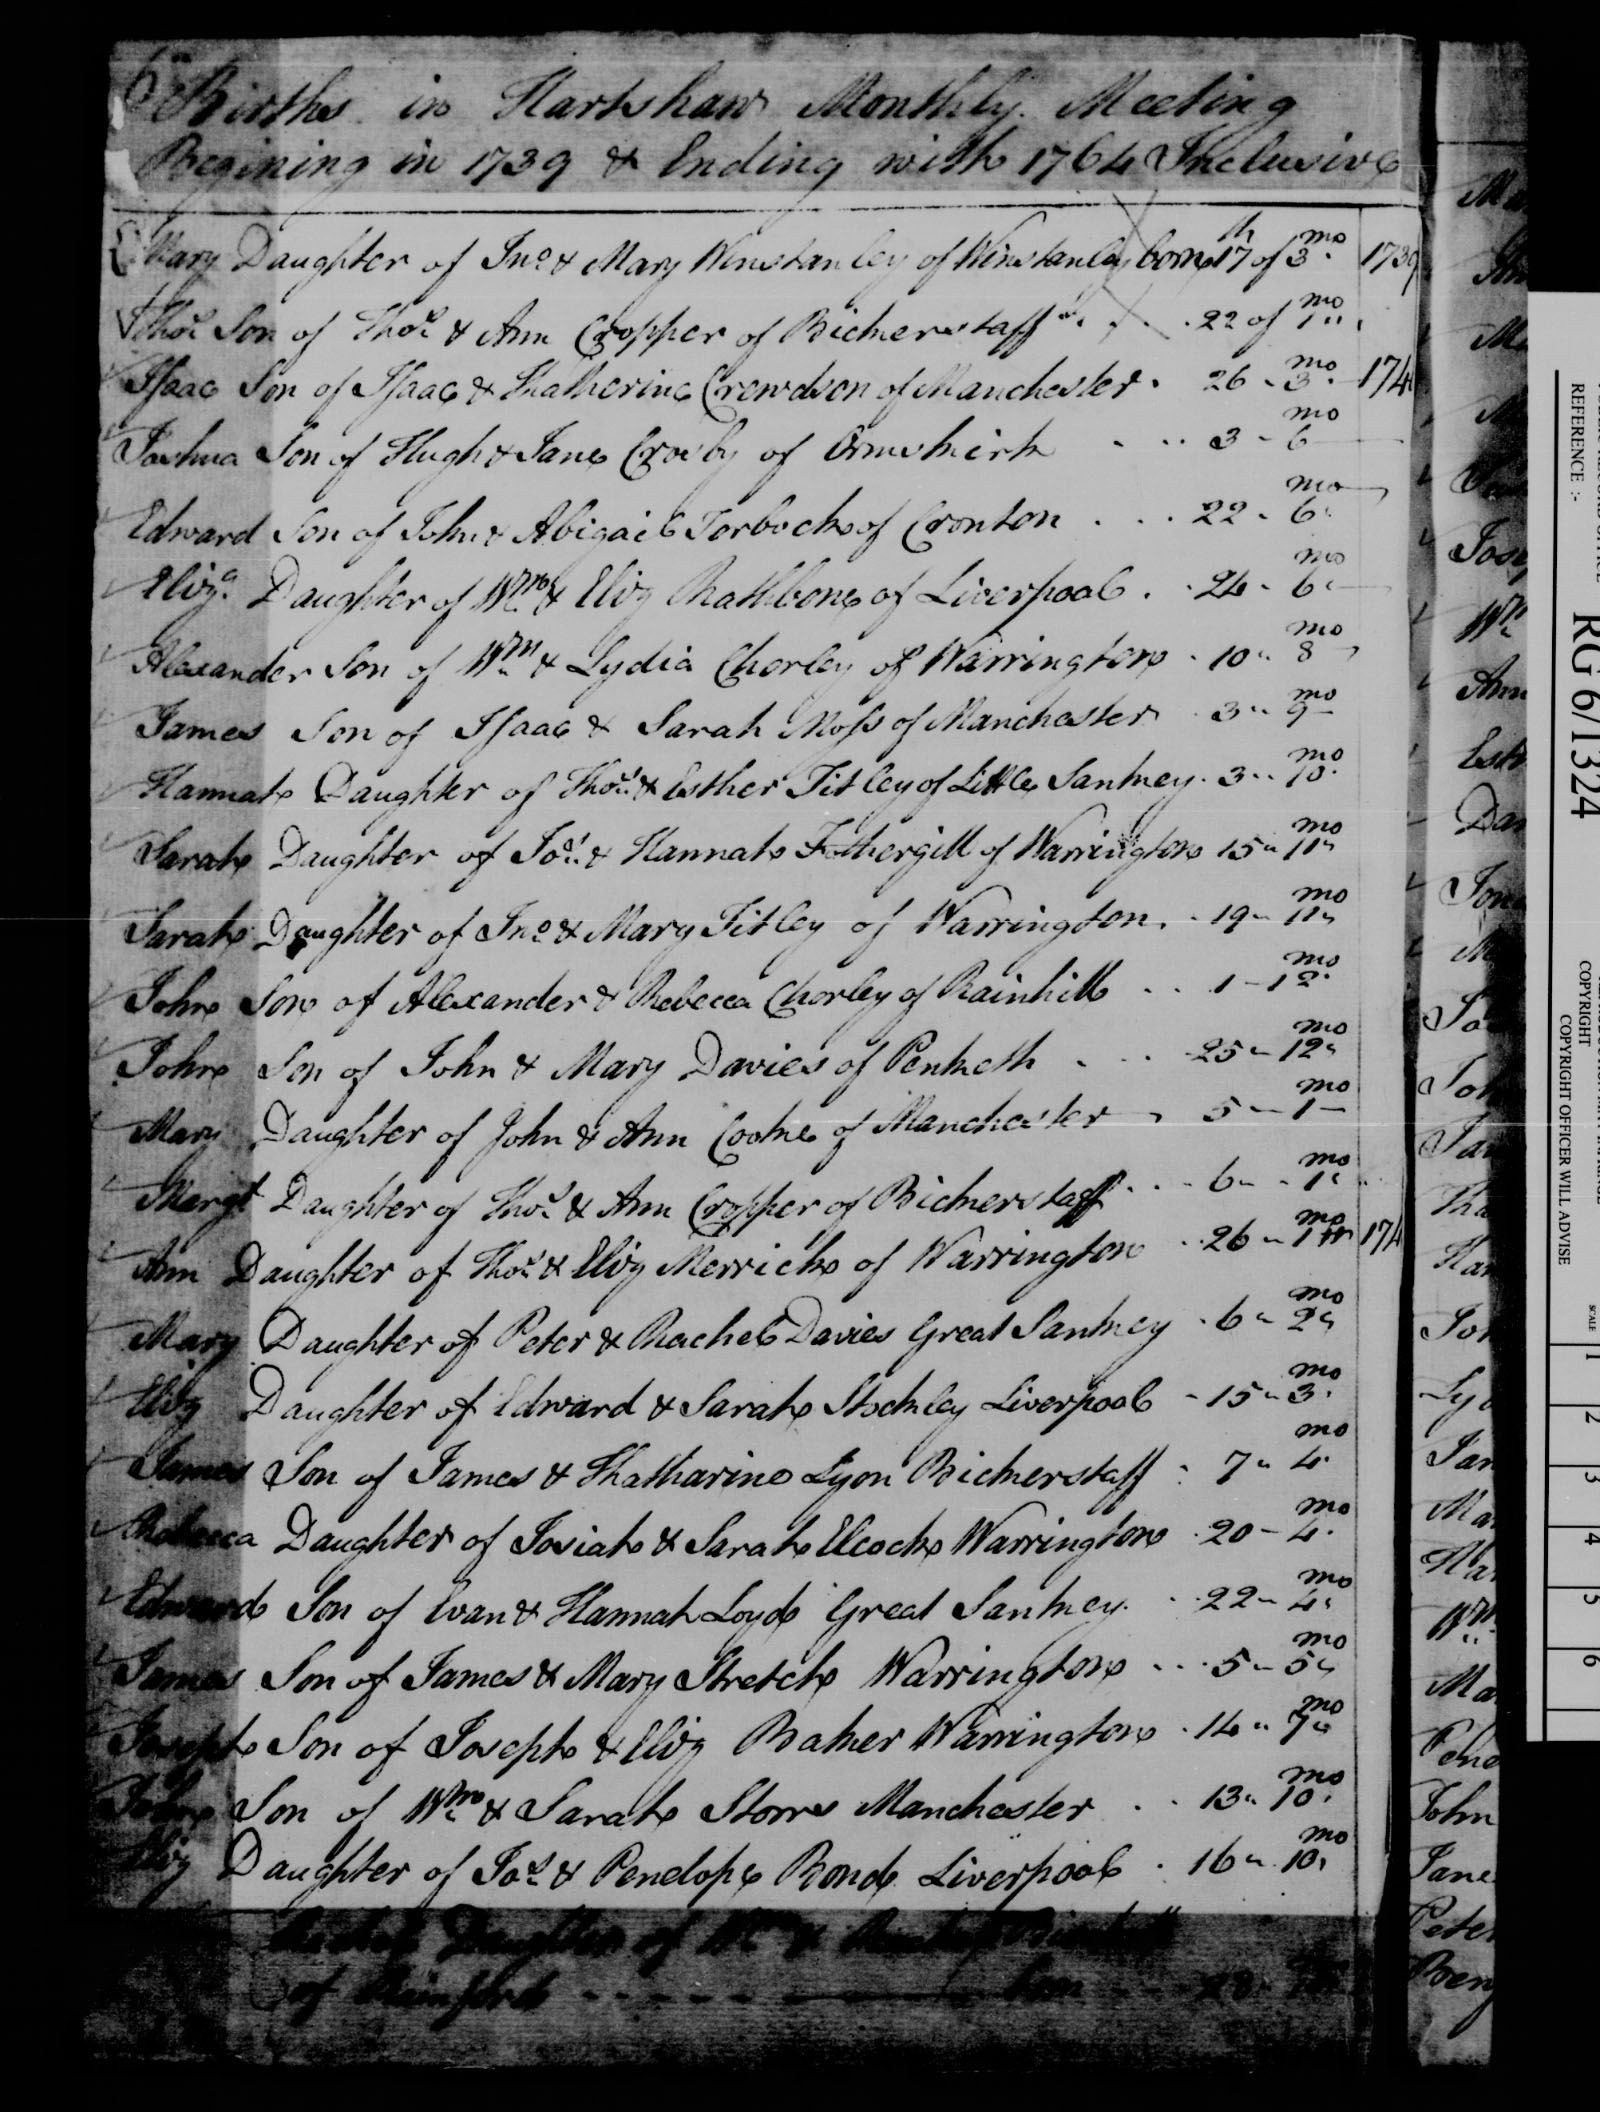 6 Births in Hartshaw Monthly Meeting
Begining in 1739 & Ending with 1764 Inclusive
Mary Daughter of Jno & Mary Winstanley of Winstanley born 17th of 3mo 1739
Thos Son of Thos & Ann Cropper of Bickerstaff . . . 22 of 1mo
Isaac Son of Isaac & Katherine Crewdson of Manchester . 26 - 3mo 174
Joshua Son of Hugh & Jane Crosby of Ormskirk . . . 3 - 6mo
Edward Son of John & Abigail Torbock of Cronton . . . 22 - 6mo
Eliza Daughter of Wm & Eliz Rathbone of Liverpool . . 24 - 6mo
Alexander Son of Wm & Lydia Chorley of Warrington . 10 - 8mo
James Son of Isaac & Sarah Moss of Manchester . 3 - 9mo
Hannah Daughter of Thos & Esther Titley of Little Sankey . 3 - 10mo
Sarah Daughter of Jos & Hannah Fothergill of Warrington 15 - 11mo
Sarah Daughter of Jno & Mary Titley of Warrington . . 19 - 11mo
John Son of Alexander & Rebecca Chorley of Rainhill . . 1 - 12mo
John Son of John & Mary Davies of Penketh . . . 25 - 12mo
Mary Daughter of John & Ann Cooke of Manchester - 5 - 1mo
Margt Daughter of Thos & Ann Cropper of Bickerstaff . . - 6 - 1mo
Ann Daughter of Thos & Eliz Merrick of Warrington . . 26 - 1mo 174
Mary Daughter of Peter & Rachel Davies Great Sankey . 6 - 2mo
Eliz Daughter of Edward & Sarah Stockley Liverpool - 15 - 3mo
James Son of James & Katharine Lyon Bickerstaff . 7 - 4mo
Rebecca Daughter of Josiah & Sarah Elcock Warrington . 20 - 4mo
Edward Son of Evan & Hannah Loyd Great Sankey . . 22 - 4mo
James Son of James & Mary Stretch Warrington . . . 5 - 5mo
Joseph Son of Joseph & Eliz Baker Warrington . 14 - 7mo
John Son of Wm & Sarah Storrs Manchester . . 13 - 10mo
Eliz Daughter of Jos & Penelope Bond Liverpool . 16 - 10mo
Daughter of Wm &
of Rainford - - - - - born 28
REFERENCE :-
RG 6/1324
COPYRIGHT
COPYRIGHT OFFICER WILL ADVISE
SCALE
1 2 3 4 5 6
Wm
Ann
John
Jane